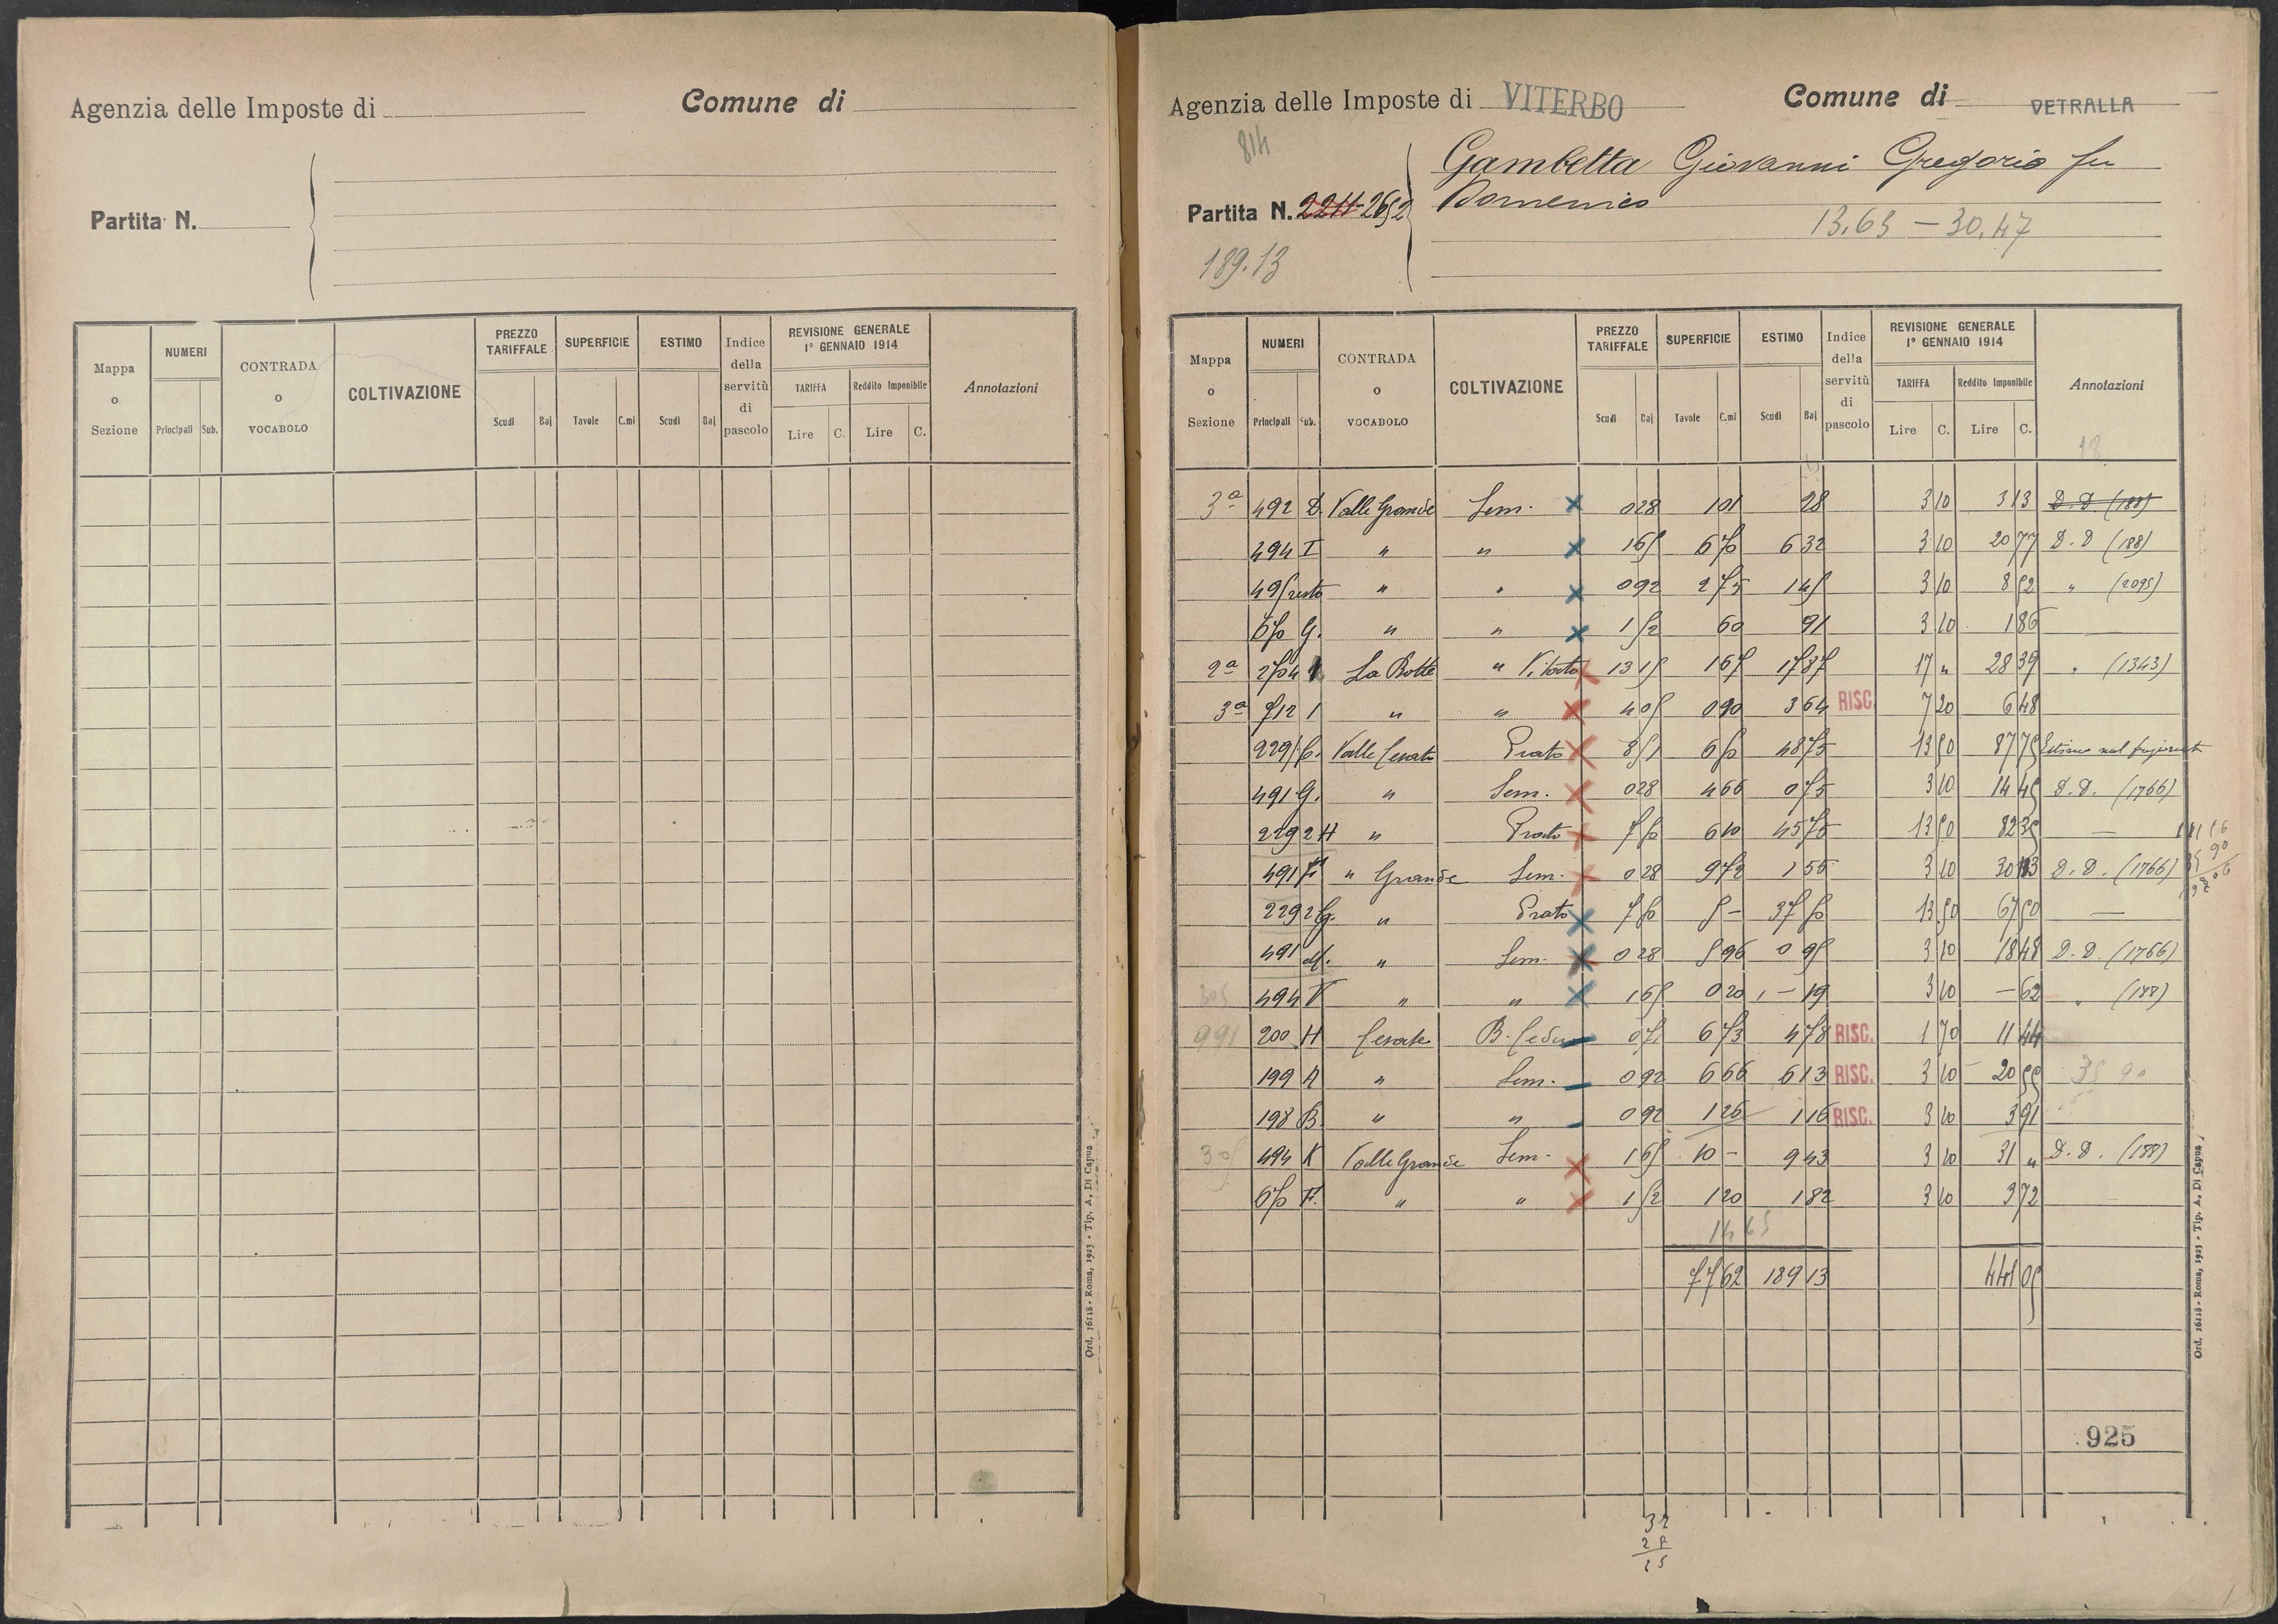 Agenzia delle Imposte di
Comune di
Partita N.
Mappa o Sezione
NUMERI
Principali Sub.
CONTRADA o VOCABOLO
COLTIVAZIONE
PREZZO TARIFFALE
Scudi Baj
SUPERFICIE
Tavole C.mi
ESTIMO
Scudi Baj
Indice della servitù di pascolo
REVISIONE GENERALE 1° GENNAIO 1914
TARIFFA
Lire C.
Reddito Imponibile
Lire C.
Annotazioni
Ord. 16118 - Roma, 1923 - Tip. A. Di Capua
Agenzia delle Imposte di VITERBO
Comune di VETRALLA
814
Gambetta Giovanni Gregorio fu
Partita N. 2211 2652 Domenico
13.65 — 30.47
189.13
Mappa o Sezione
NUMERI
Principali Sub.
CONTRADA o VOCABOLO
COLTIVAZIONE
PREZZO TARIFFALE
Scudi Baj
SUPERFICIE
Tavole C.mi
ESTIMO
Scudi Baj
Indice della servitù di pascolo
REVISIONE GENERALE 1° GENNAIO 1914
TARIFFA
Lire C.
Reddito Imponibile
Lire C.
Annotazioni
18
3ª 492 D. Valle Grande Sem. 0 28 1 01 28 3 10 3 13 D. D. (188)
494 I " " 1 65 6 70 6 32 3 10 20 77 D. D (188)
495 resto " " 0 92 2 75 1 45 3 10 8 52 " (2095)
670 G. " " 1 52 60 91 3 10 1 86
2ª 2704 1 La Botte " Vitato 13 15 1 67 17 87 17 " 28 39 " (1343)
3ª 712 1 " " 4 05 0 90 3 64 RISC. 7 20 6 48
229 Valle Cesate Prato 6 50 48 75 13 50 87 75 Estimo
491 G. " Sem. 0 28 4 66 0 75 3 10 14 45 D. D. (1766)
229 2 H " Prato 7 50 6 10 45 75 13 50 82 35 —
491 " Grande Sem. 0 28 9 72 1 55 3 10 30 13 D. D. (1766)
229 2 G. " Prato 7 50 5 — 37 50 13 50 67 50 —
491 M. " Sem. 0 28 5 96 0 95 3 10 18 48 D. D. (1766)
494 V " " 1 65 0 20 — 19 3 10 — 62 " (188)
991 200 H Cesate B. Ceduo 0 71 6 73 4 78 RISC. 1 70 11 44
199 A " Sem. 0 92 6 66 6 13 RISC. 3 10 20 55 35 90
198 B. " " 0 92 1 26 1 16 RISC. 3 10 3 91
305 494 K Valle Grande Sem. 1 65 10 — 9 43 3 10 31 " D. D. (188)
670 F. " " 1 52 1 20 1 82 3 10 3 72
14 65
77 62 189 13 441 05
925
Ord. 16118 - Roma, 1923 - Tip. A. Di Capua